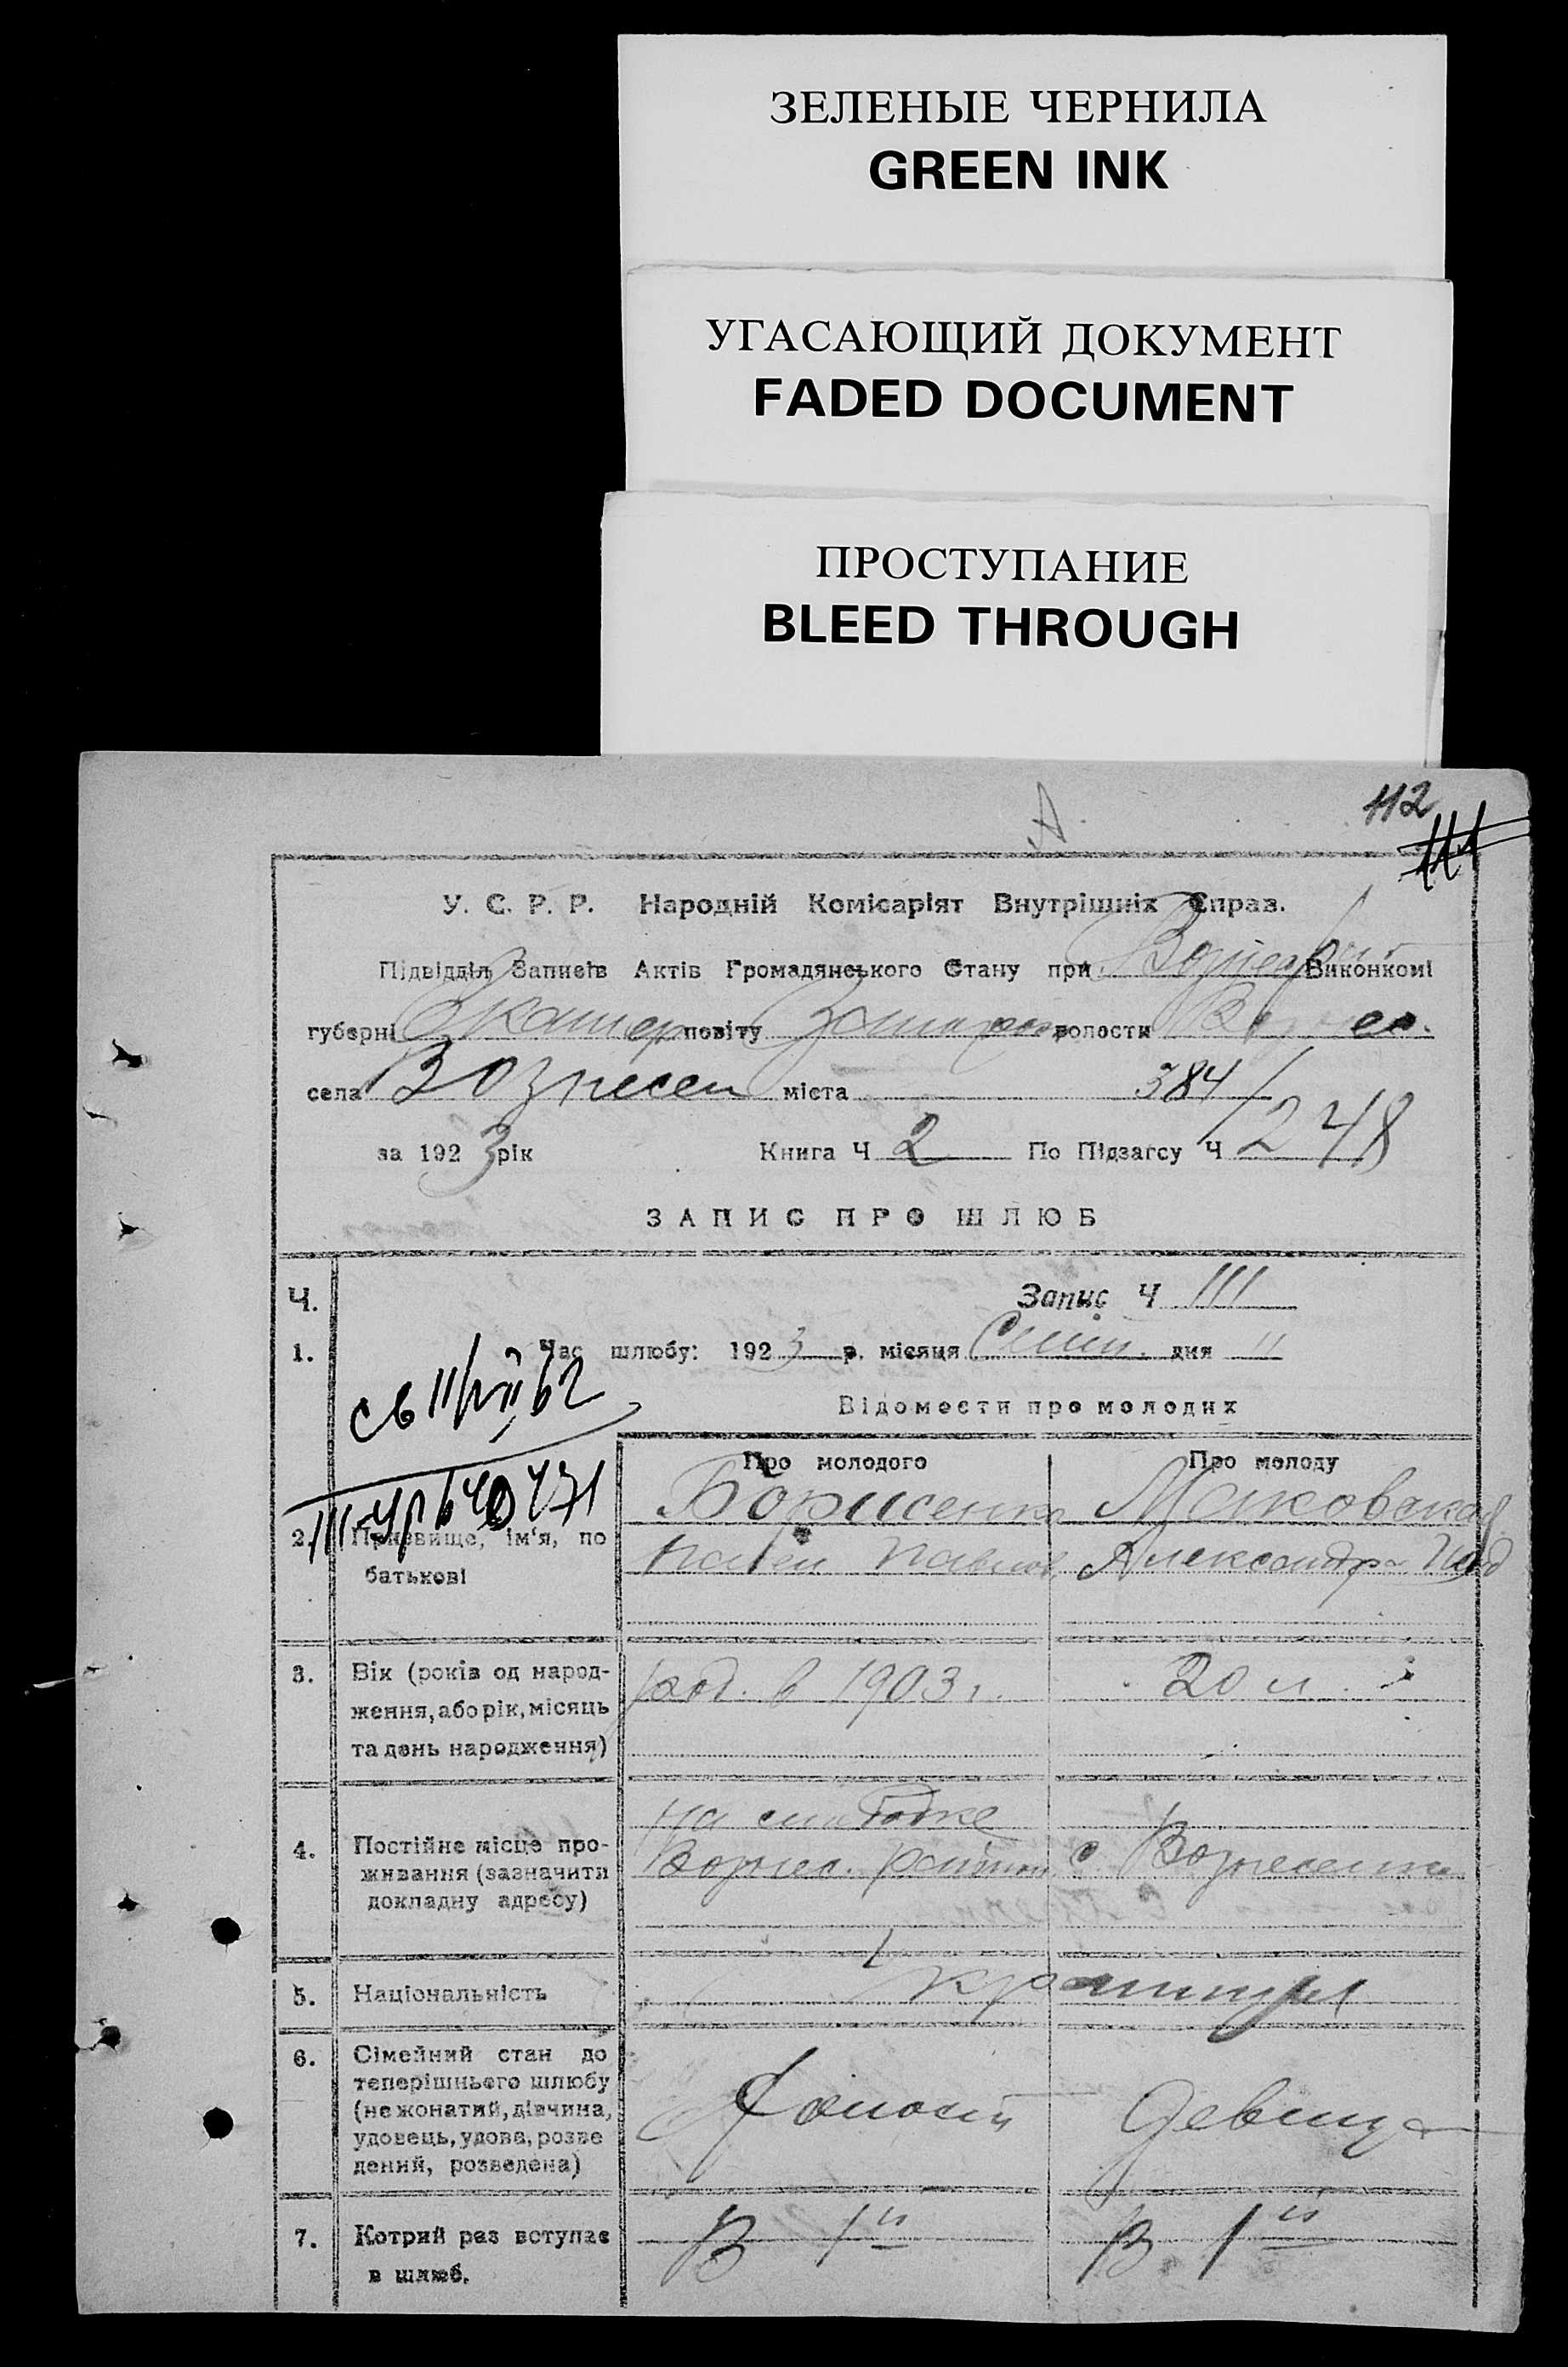 ЗЕЛЕНЫЕ ЧЕРНИЛА
GREEN INK
УГАСАЮЩИЙ ДОКУМЕНТ
FADED DOCUMENT
ПРОСТУПАНИЕ
BLEED THROUGH
А
112
111
У. С. Р. Р. Народній Комісаріят Внутрішніх Справ.
Підвідділ Записів Актів Громадянського Стану при Виконкомі
губерні Екатер повіту Запорож волости Вознес.
села Вознесен міста 384/
за 1923 рік Книга Ч 2 По Підзагсу Ч 248
ЗАПИС ПРО ШЛЮБ
Ч. Запис Ч 111
1. Час шлюбу: 1923 р. місяця дня 11
Відомости про молодих
Про молодого Про молоду
Борисенко Маковская
2. Призвище, ім'я, по батькові
Павел Павлов. Александра
3. Вік (років од народ-
ження, або рік, місяць
та день народження)
род. в 1903 г. 20 л.
4. Постійне місце про-
живання (зазначити
докладну адресу)
на слободке
Вознес. район с. Вознесенка
5. Національність
украинцы
6. Сімейний стан до
теперішнього шлюбу
(не жонатий, дівчина,
удовець, удова, розве
дений, розведена)
холост девица
7. Котрий раз вступає
в шлюб.
В 1й В 1й